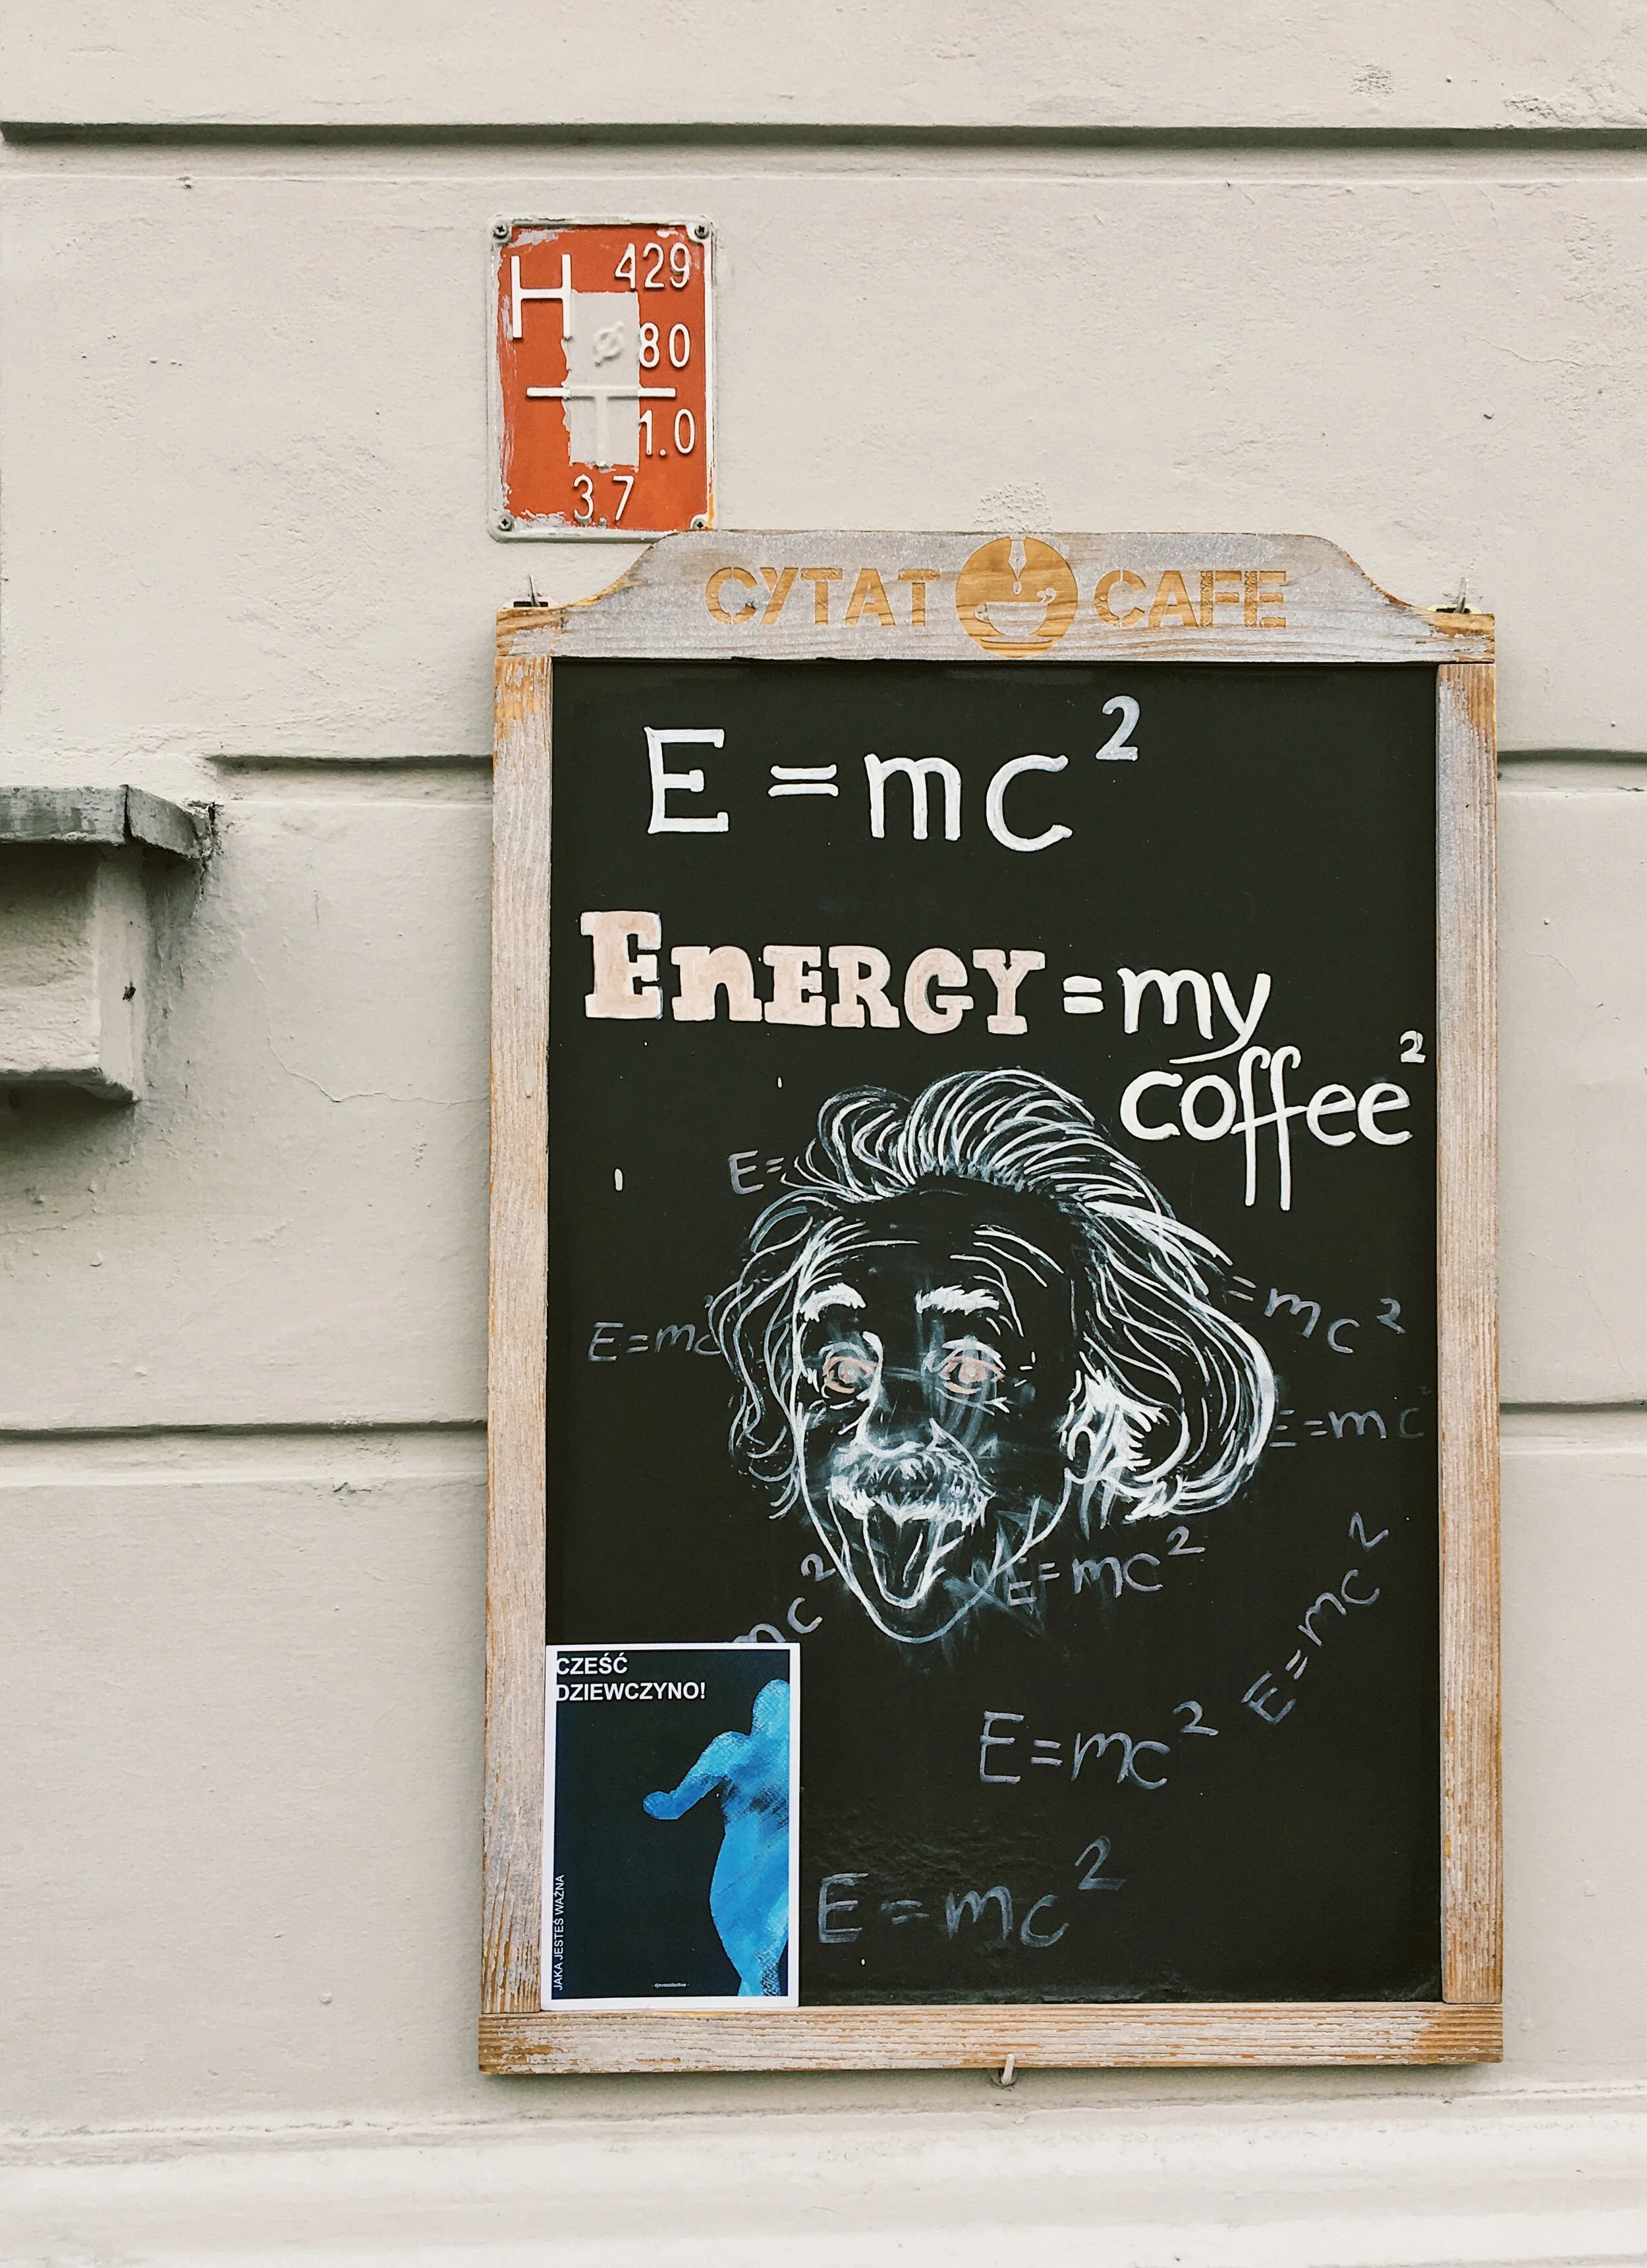 H 429
Ø80
1.0
3.7
CYTAT CAFE
E=mc²
ENERGY=my
coffee²
E=
E=mc²
=mc²
E=mc²
E=mc²
mc²
E=mc²
E=mc²
E=mc²
CZEŚĆ
DZIEWCZYNO!
JAKA JESTEŚ WAŻNA